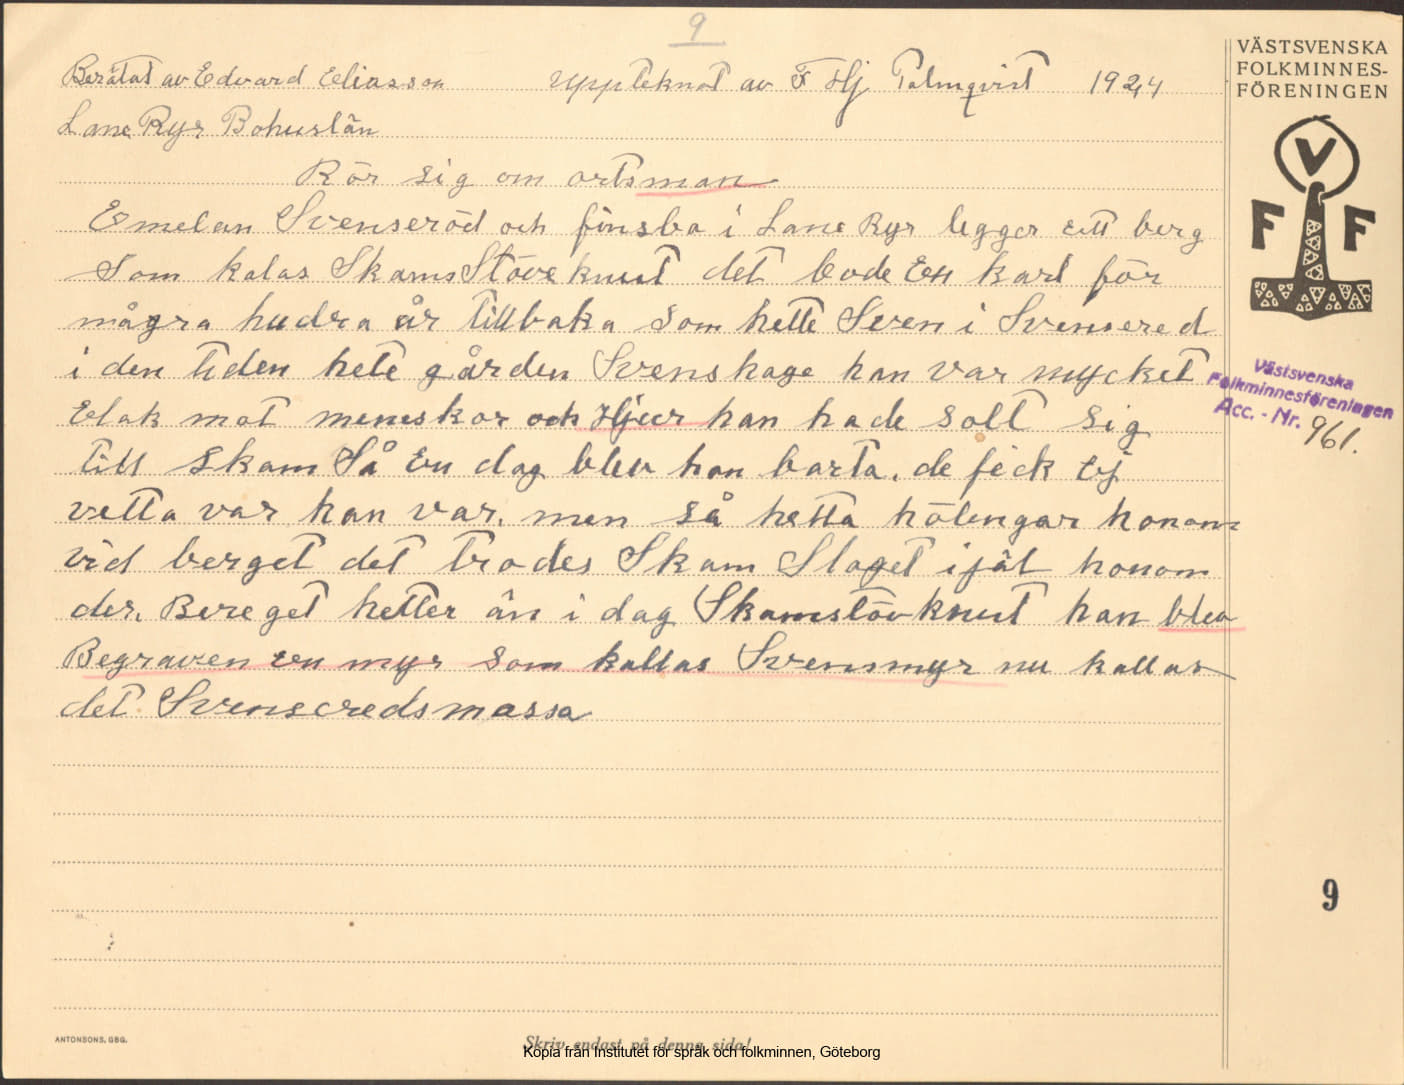 9
Berätat av Edvard Eliasson Uppteknat av F Hj Palmqvist 1924
Lane Ryr Bohuslän
Rör sig om ortsman
Emelan Svenseröd och finsbo i Lane Ryr legger ett berg
Som kalas SkamsStöveknut det bode En karl för
mågra hudra år tillbaka som hette Sven i Svensered
i den tiden hete gården Svenskage han var mycket
Elak mot meneskor och Hjur han hade solt sig
till Skam Så En dag blev han borta. de feck Ej
vetta var han var. men så hetta hölengar honom
vid berget det trodes Skam Slaget ijäl honom
der. Bereget hetter än i dag Skamstövknut han blev
Begraven en myr som kallas Svensmyr nu kallas
det Svenseredsmassa
VÄSTSVENSKA
FOLKMINNES-
FÖRENINGEN
V
F F
Västsvenska
Folkminnesföreningen
Acc. - Nr. 961.
9
ANTONSONS, GBG.
Skriv endast på denna sida!
Kopia från Institutet för språk och folkminnen, Göteborg